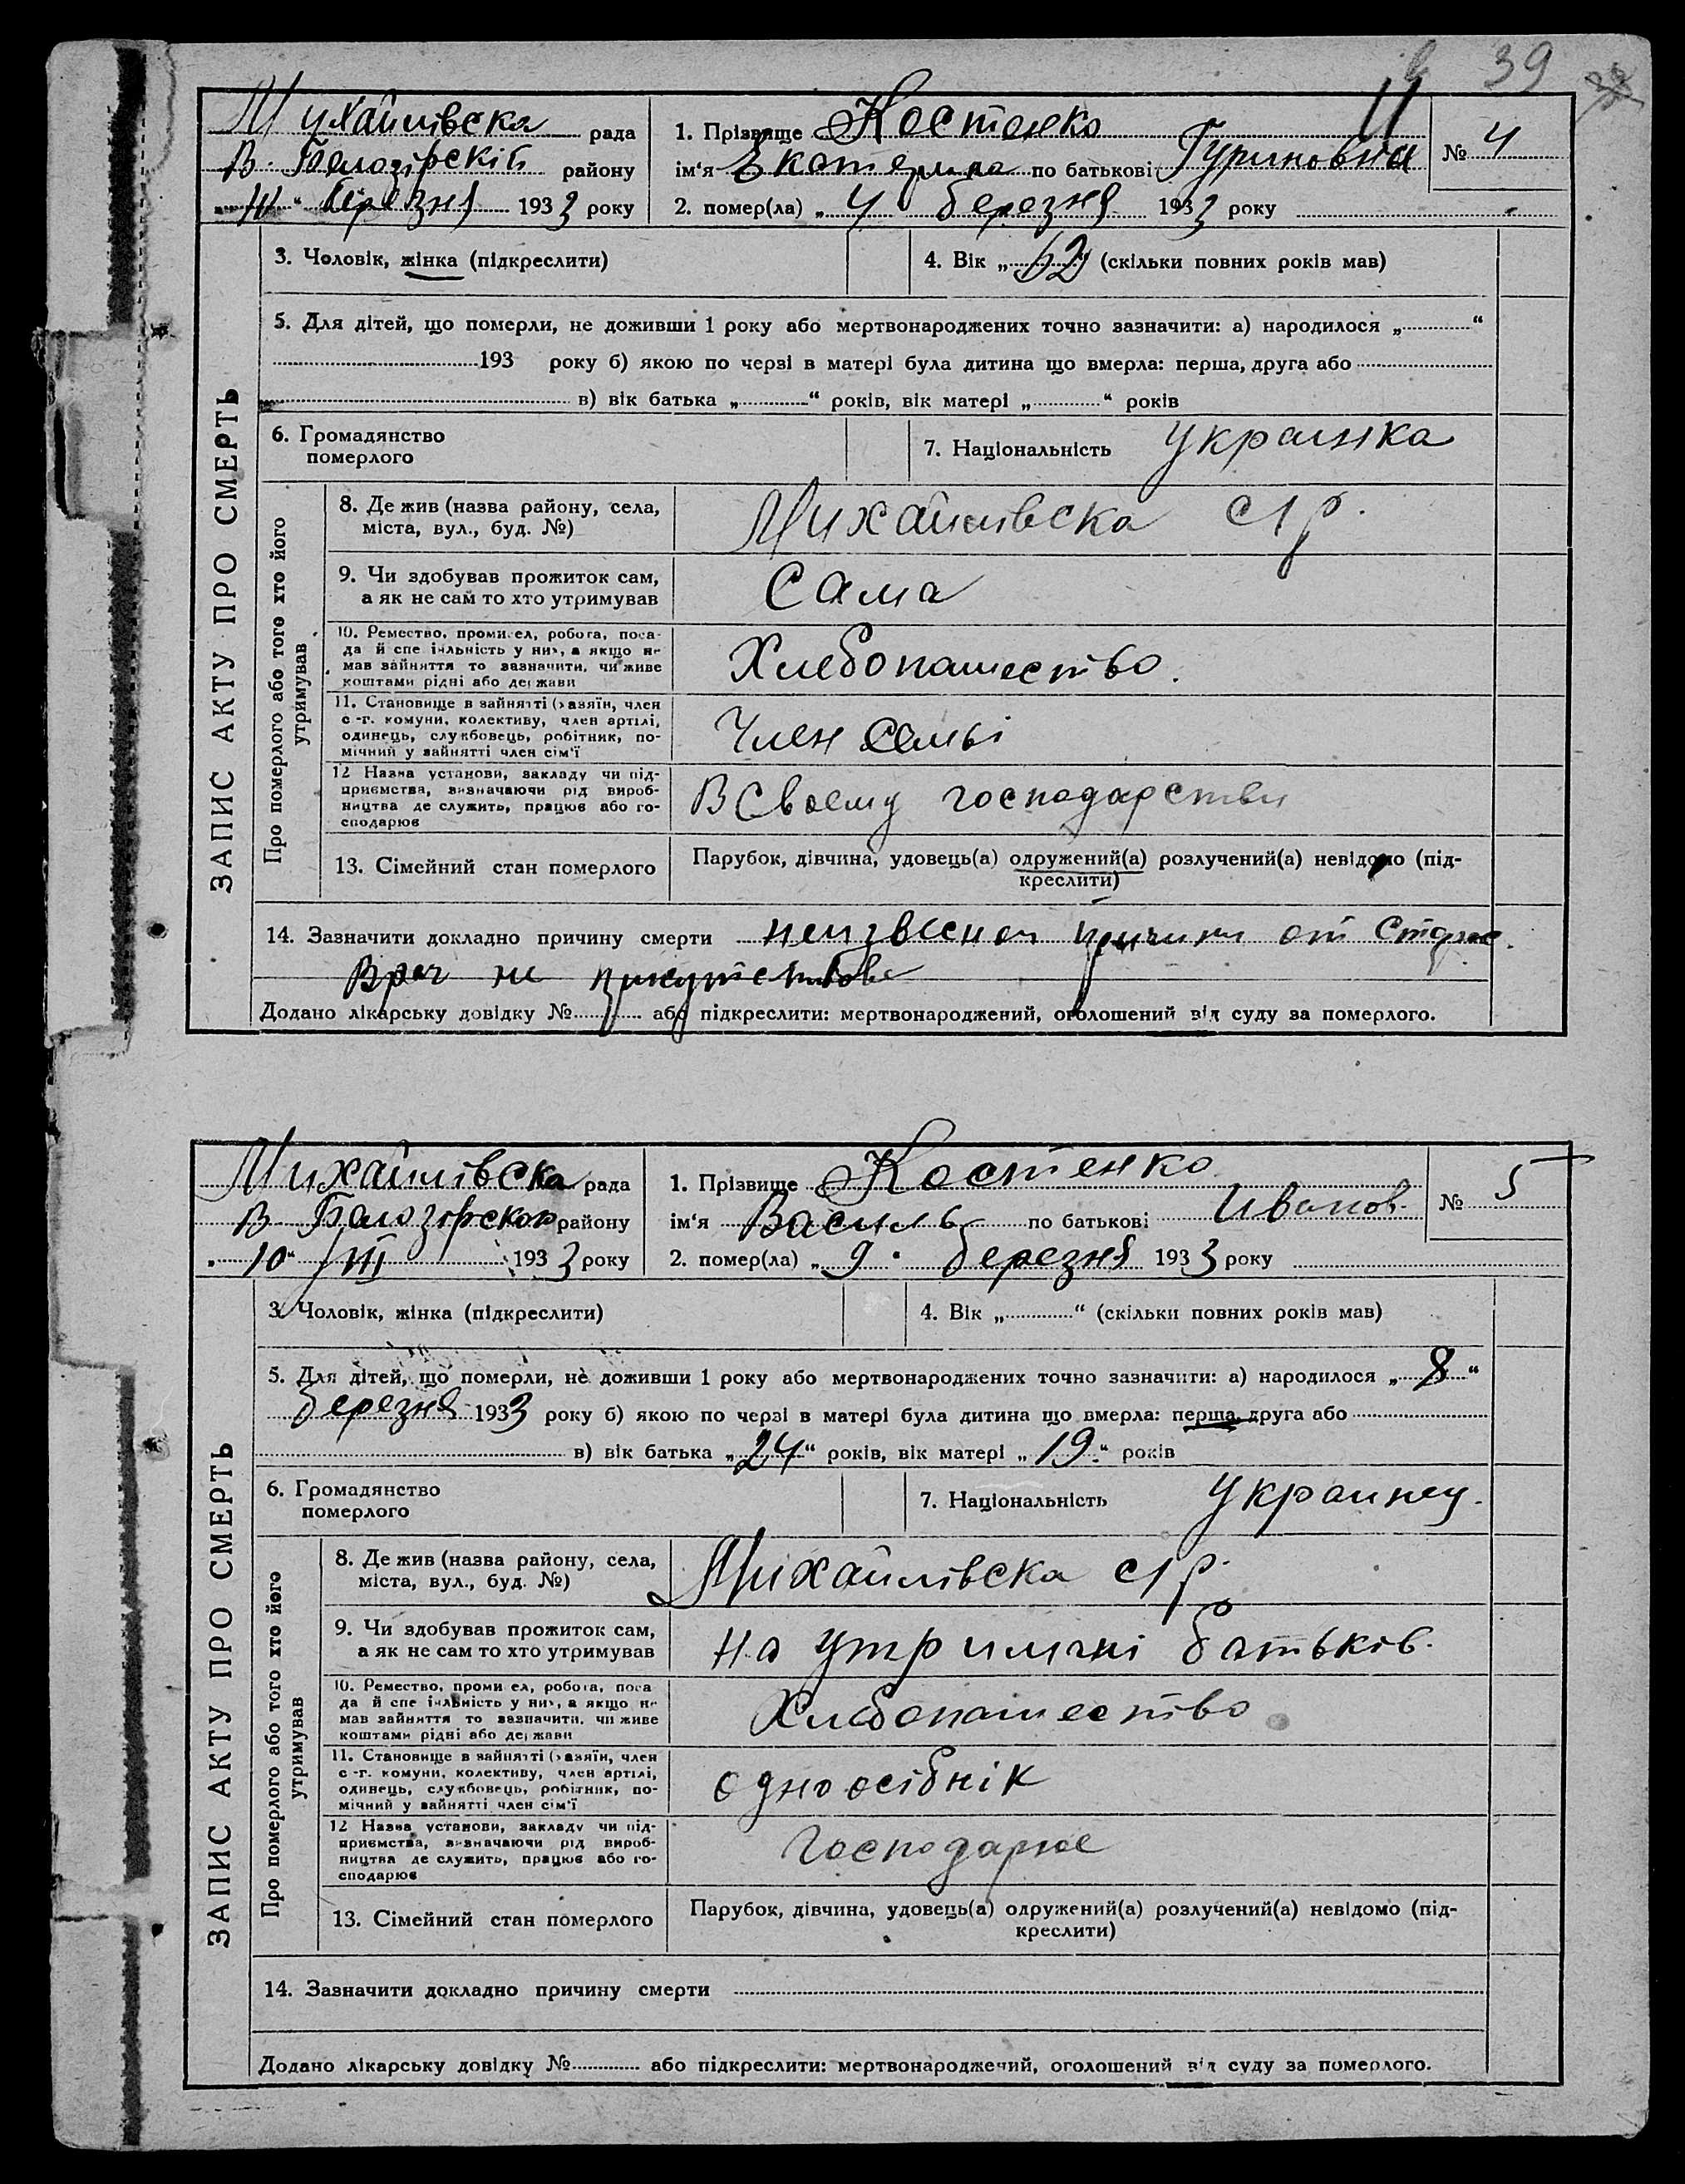 39
Михайлівска рада
В. Білозірскій району
193 3 року
1. Прізвище Костенко
ім'я Екотерина по батькові Гуриновна
№ 4
2. помер(ла) „ 4 березня 193 3 року
ЗАПИС АКТУ ПРО СМЕРТЬ
3. Чоловік, жінка (підкреслити)
4. Вік „ 62 “ (скільки повних років мав)
5. Для дітей, що померли, не доживши 1 року або мертвонароджених точно зазначити: а) народилося „ “
193 року б) якою по черзі в матері була дитина що вмерла: перша, друга або
в) вік батька „ “ років, вік матері „ “ років
6. Громадянство
померлого
7. Національність Украинка
Про померлого або того хто його
утримував
8. Де жив (назва району, села,
міста, вул., буд. №)
Михайлівска с/р.
9. Чи здобував прожиток сам,
а як не сам то хто утримував
Сама
10. Ремество, промисел, робота, поса-
да й спеціяльність у них, а якщо не
мав зайняття то зазначити, чи живе
коштами рідні або держави
Хлебопашество.
11. Становище в зайнятті (хазяїн, член
с.-г. комуни, колективу, член артілі,
одинець, службовець, робітник, по-
мічний у зайнятті член сім'ї
Член семьі
12 Назва установи, закладу чи під-
приємства, визначаючи рід вироб-
ництва де служить, працює або го-
сподарює
В Своему господарстви
13. Сімейний стан померлого
Парубок, дівчина, удовець(а) одружений(а) розлучений(а) невідомо (під-
креслити)
14. Зазначити докладно причину смерти неизвесной причини от
Врач не
Додано лікарську довідку № або підкреслити: мертвонароджений, оголошений від суду за померлого.
Михайлівска рада
В Білозірского району
„ 10 “ / III 193 3 року
1. Прізвище Костенко
ім'я Василь по батькові Иванов.
№ 5
2. помер(ла) „ 9. березня 193 3 року
ЗАПИС АКТУ ПРО СМЕРТЬ
3. Чоловік, жінка (підкреслити)
4. Вік „ “ (скільки повних років мав)
5. Для дітей, що померли, не доживши 1 року або мертвонароджених точно зазначити: а) народилося „ 8 “
березня 193 3 року б) якою по черзі в матері була дитина що вмерла: перша, друга або
в) вік батька „ 24 “ років, вік матері „ 19 “ років
6. Громадянство
померлого
7. Національність
Про померлого або того хто його
утримував
8. Де жив (назва району, села,
міста, вул., буд. №)
Михайлівска с/р
9. Чи здобував прожиток сам,
а як не сам то хто утримував
на утримані батьків.
10. Ремество, промисел, робота, поса
да й спеціяльність у них, а якщо не
мав зайняття то зазначити, чи живе
коштами рідні або держави
Хлебопашество
11. Становище в зайнятті (хазяїн, член
с.-г. комуни, колективу, член артілі,
одинець, службовець, робітник, по-
мічний у зайнятті член сім'ї
одноосібнік
12 Назва установи, закладу чи під-
приємства, визначаючи рід вироб-
ництва де служить, працює або го-
сподарює
Господарює
13. Сімейний стан померлого
Парубок, дівчина, удовець(а) одружений(а) розлучений(а) невідомо (під-
креслити)
14. Зазначити докладно причину смерти
Додано лікарську довідку № або підкреслити: мертвонароджений, оголошений від суду за померлого.